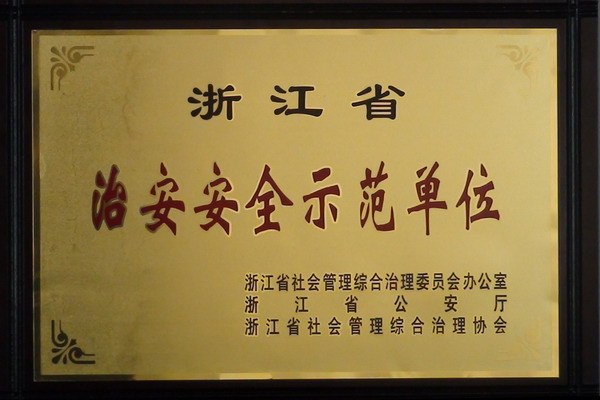 浙江省
治安安全示范单位
浙江省社会管理综合治理委员会办公室
浙江省公安厅
浙江省社会管理综合治理协会